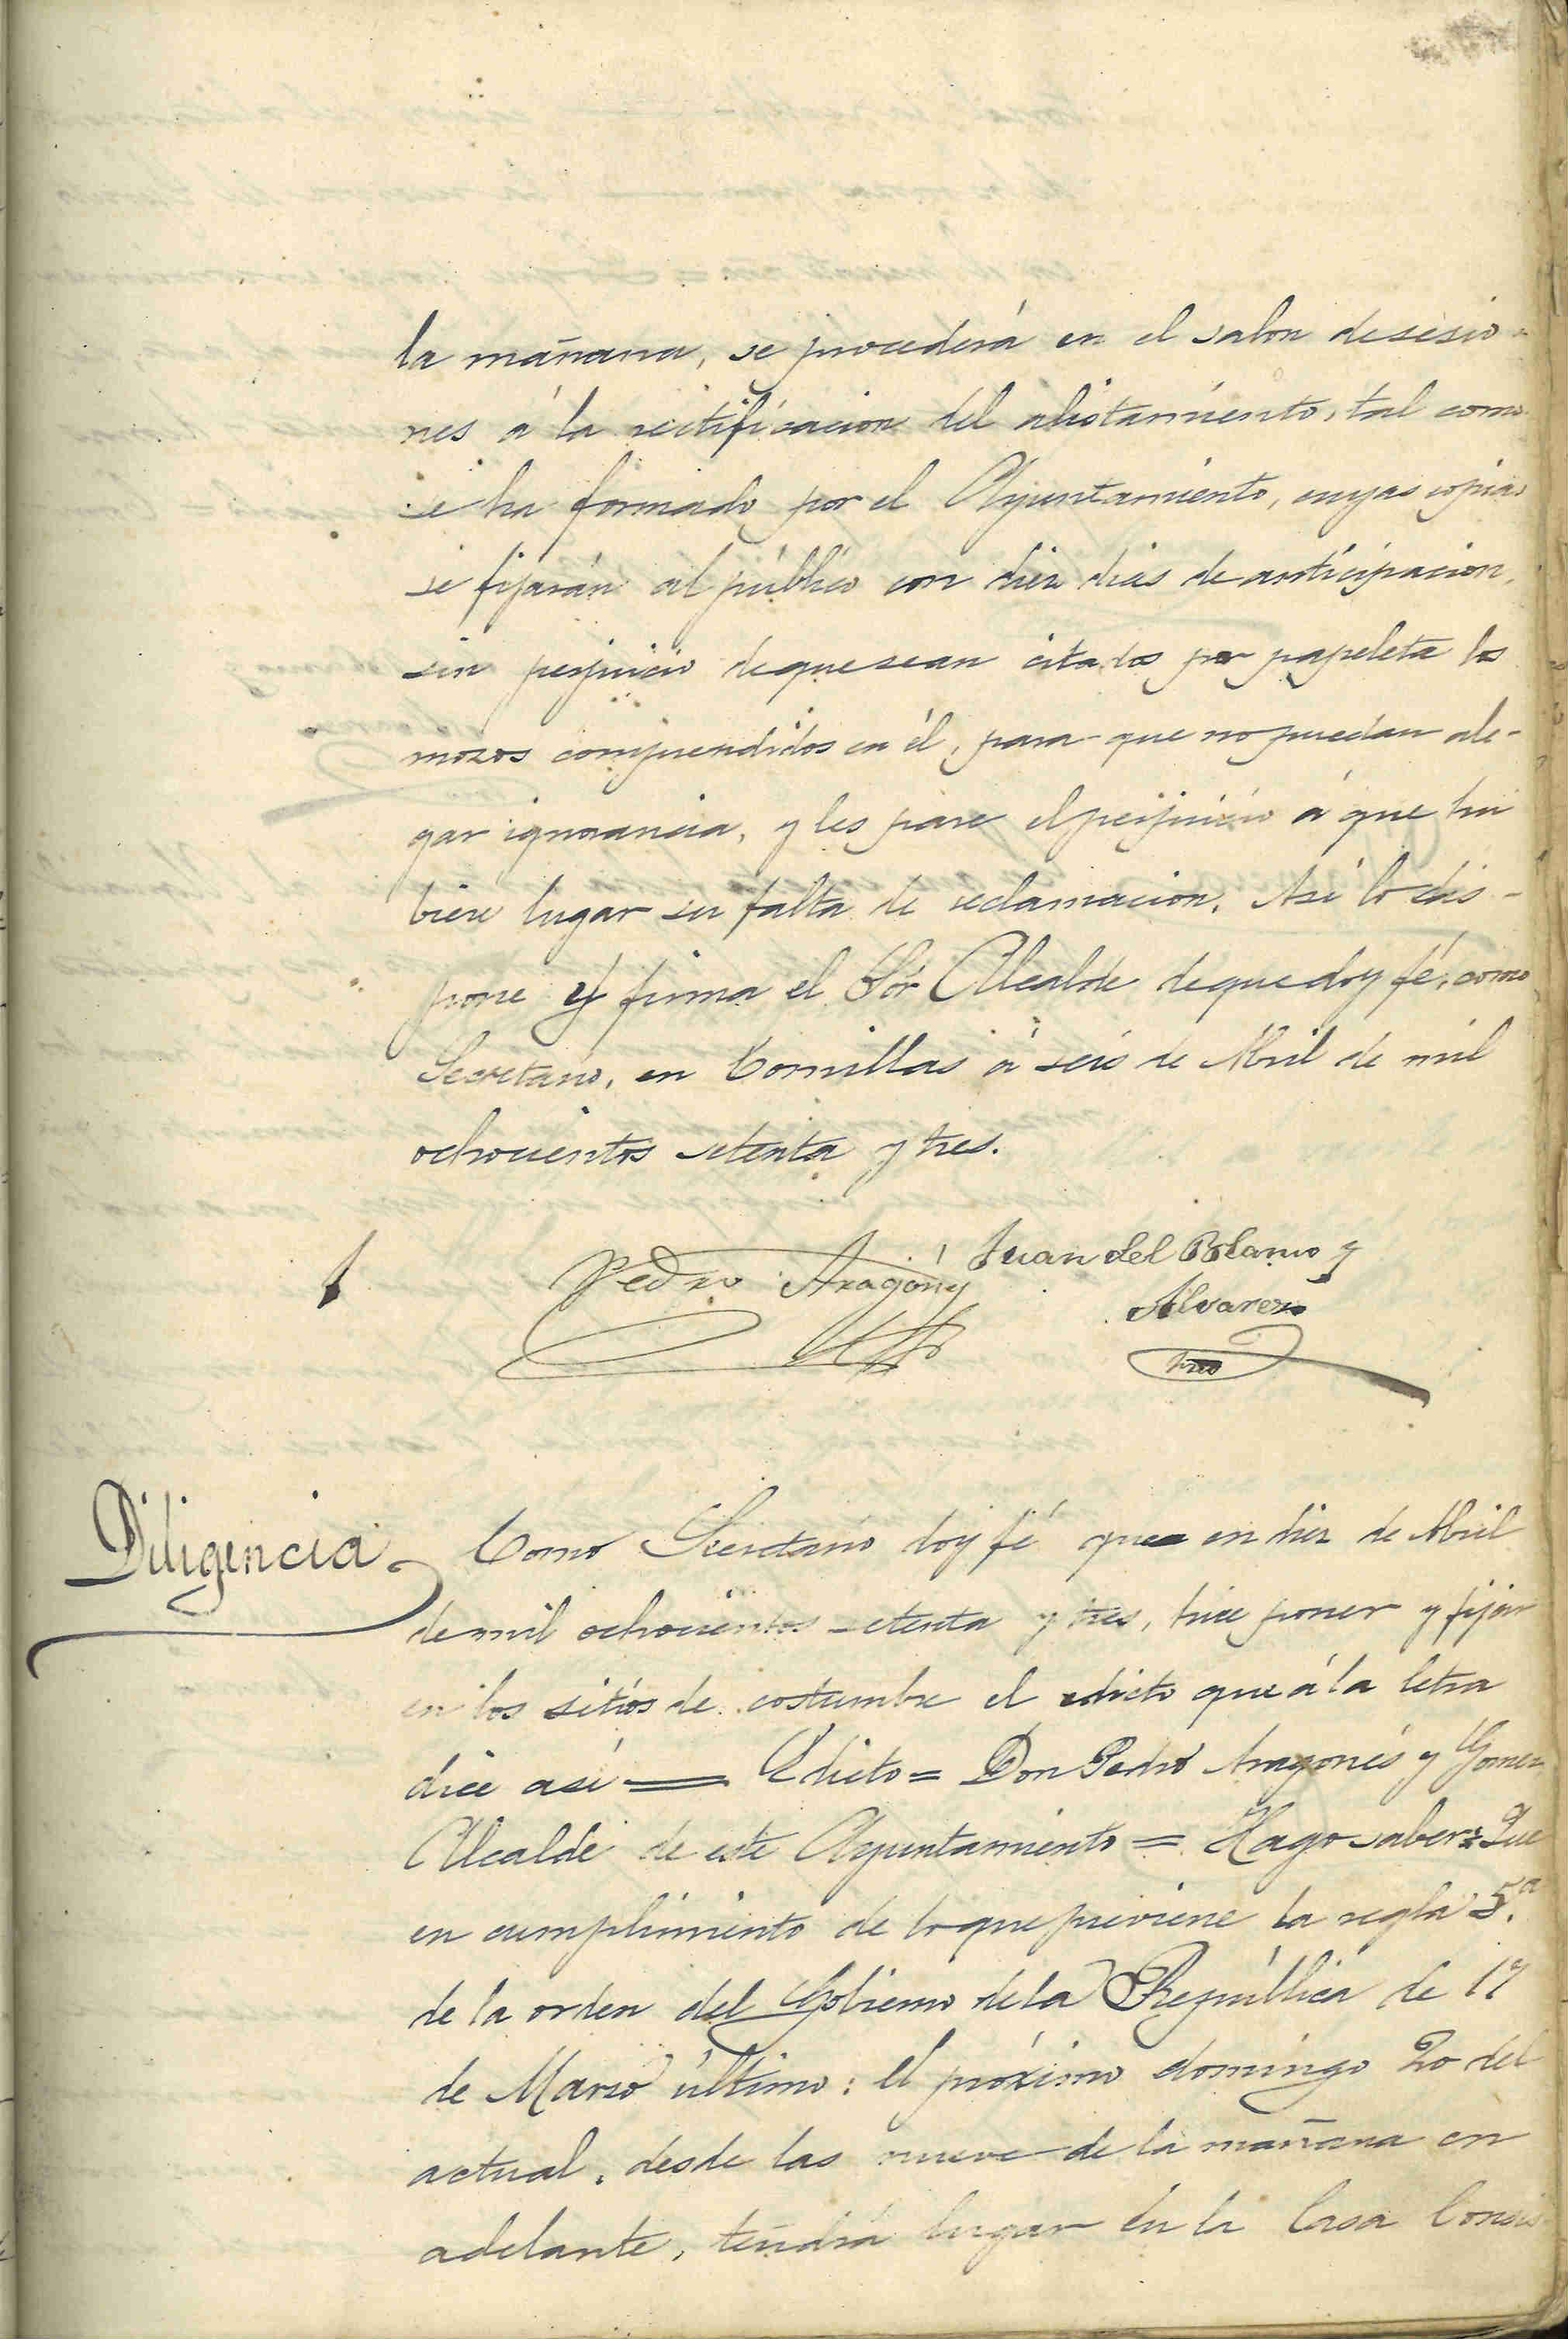 la mañana, se procederá en el salon de sesio-
nes á la rectificacion del alistamiento, tal como
se ha formado por el Ayuntamiento, cuyas copias
se fijarán al público con diez dias de anticipacion,
sin perjuicio de que sean citados por papeleta los
mozos comprendidos en él, para que no puedan ale-
gar ignorancia, y les pare el perjuicio á que hu
biere lugar su falta de reclamacion. Asi lo dis-
pone y firma el Sor Alcalde de que doy fé, como
Secretario, en Comillas á seis de Abril de mil
ochocientos setenta y tres.
Pedro Aragon Juan del Blanco y
Alvarez
Diligencia Como Secretario doy fé que en diez de Abril
de mil ochocientos setenta y tres, hice poner y fijar
en los sitios de costumbre el edicto que á la letra
dice asi = Edicto = Don Pedro Aragonés y Gomez
Alcalde de este Ayuntamiento = Hago saber: Que
en cumplimiento de lo que previene la regla 5.a
de la orden del Gobierno de la República de 17
de Marzo último: el próximo domingo 20 del
actual, desde las nueve de la mañana en
adelante, tendrá lugar en la Casa Consis